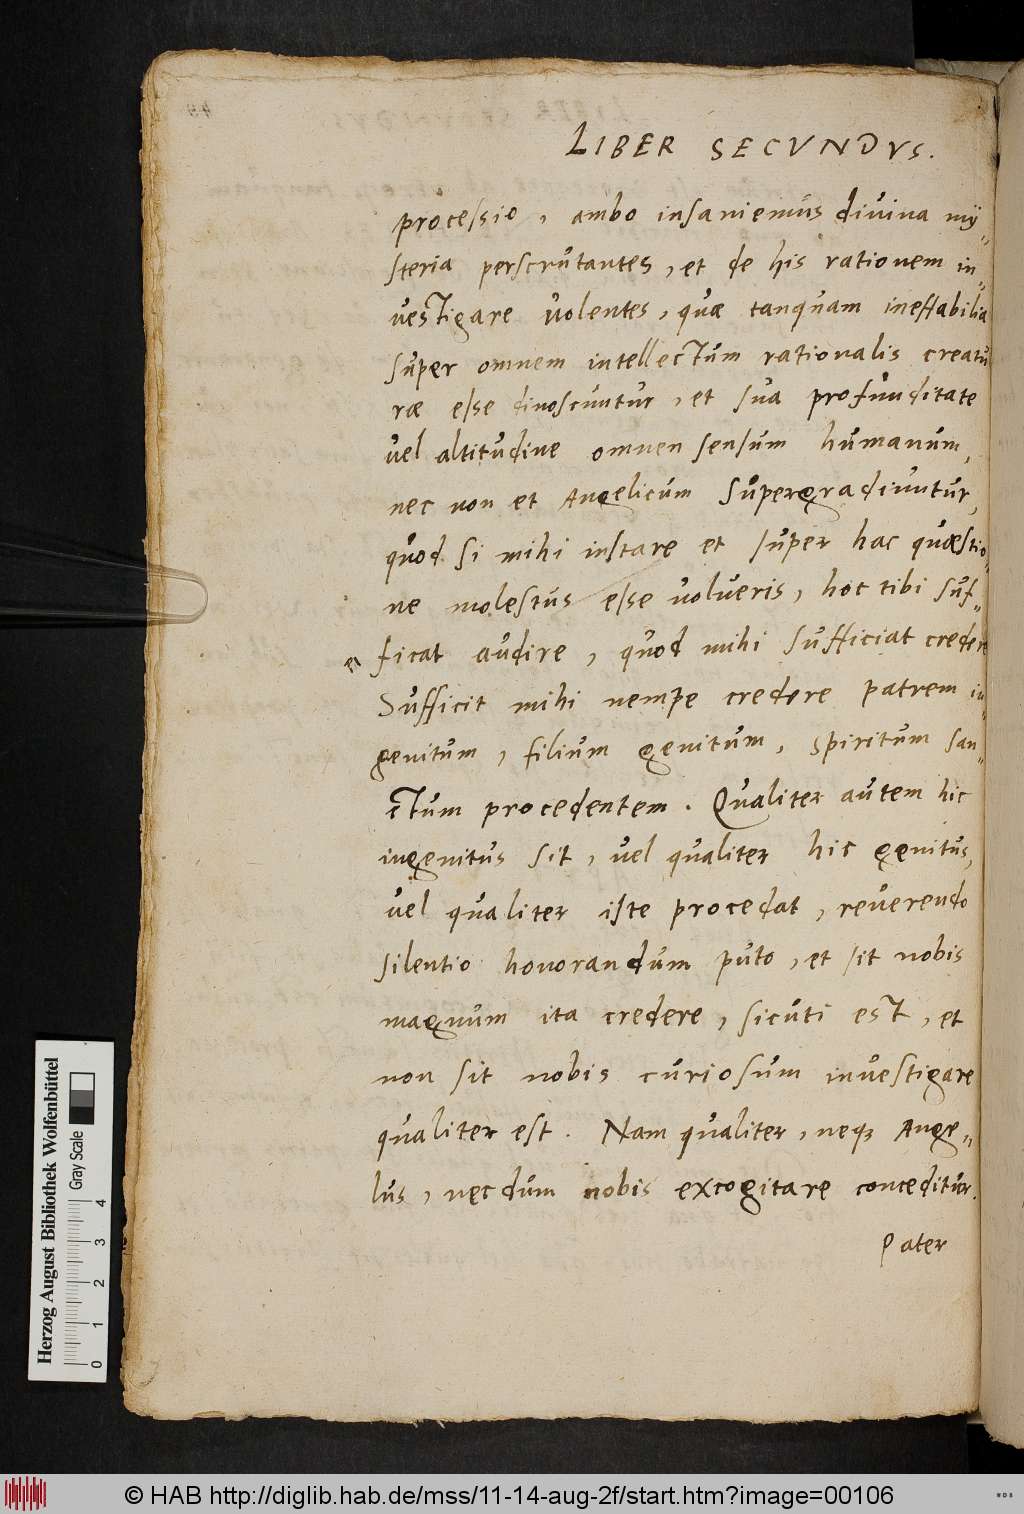 LIBER SECVNDVS.
processio, ambo insaniemus divina mÿ„
steria perscrutantes, et de his rationem in„
vestigare volentes, quæ tanquam ineffabilia
super omnem intellectum rationalis creatu
ræ esse dinoscuntur, et sua profunditate
vel altitudine omnen sensum humanum,
nec non et Angelicum supergradiuntur,
quod si mihi instare et super hac quæstio„
ne molestus esse volueris, hoc tibi suf„
ficat audire, quod mihi sufficiat credere
Sufficit mihi nempe credere patrem in„
genitum, filium genitum, spiritum san„
ctum procedentem. Qualiter autem hic
ingenitus sit, vel qualiter hic genitus,
vel qualiter iste procedat, reverendo
silentio honorandum puto, et sit nobis
magnum ita credere, sicuti est, et
non sit nobis curiosum investigare
qualiter est. Nam qualiter, neqꝫ Ange„
lus, necdum nobis excogitare conceditur.
Pater
Herzog August Bibliothek Wolfenbüttel
Gray Scale
0 1 2 3 4
© HAB http://diglib.hab.de/mss/11-14-aug-2f/start.htm?image=00106